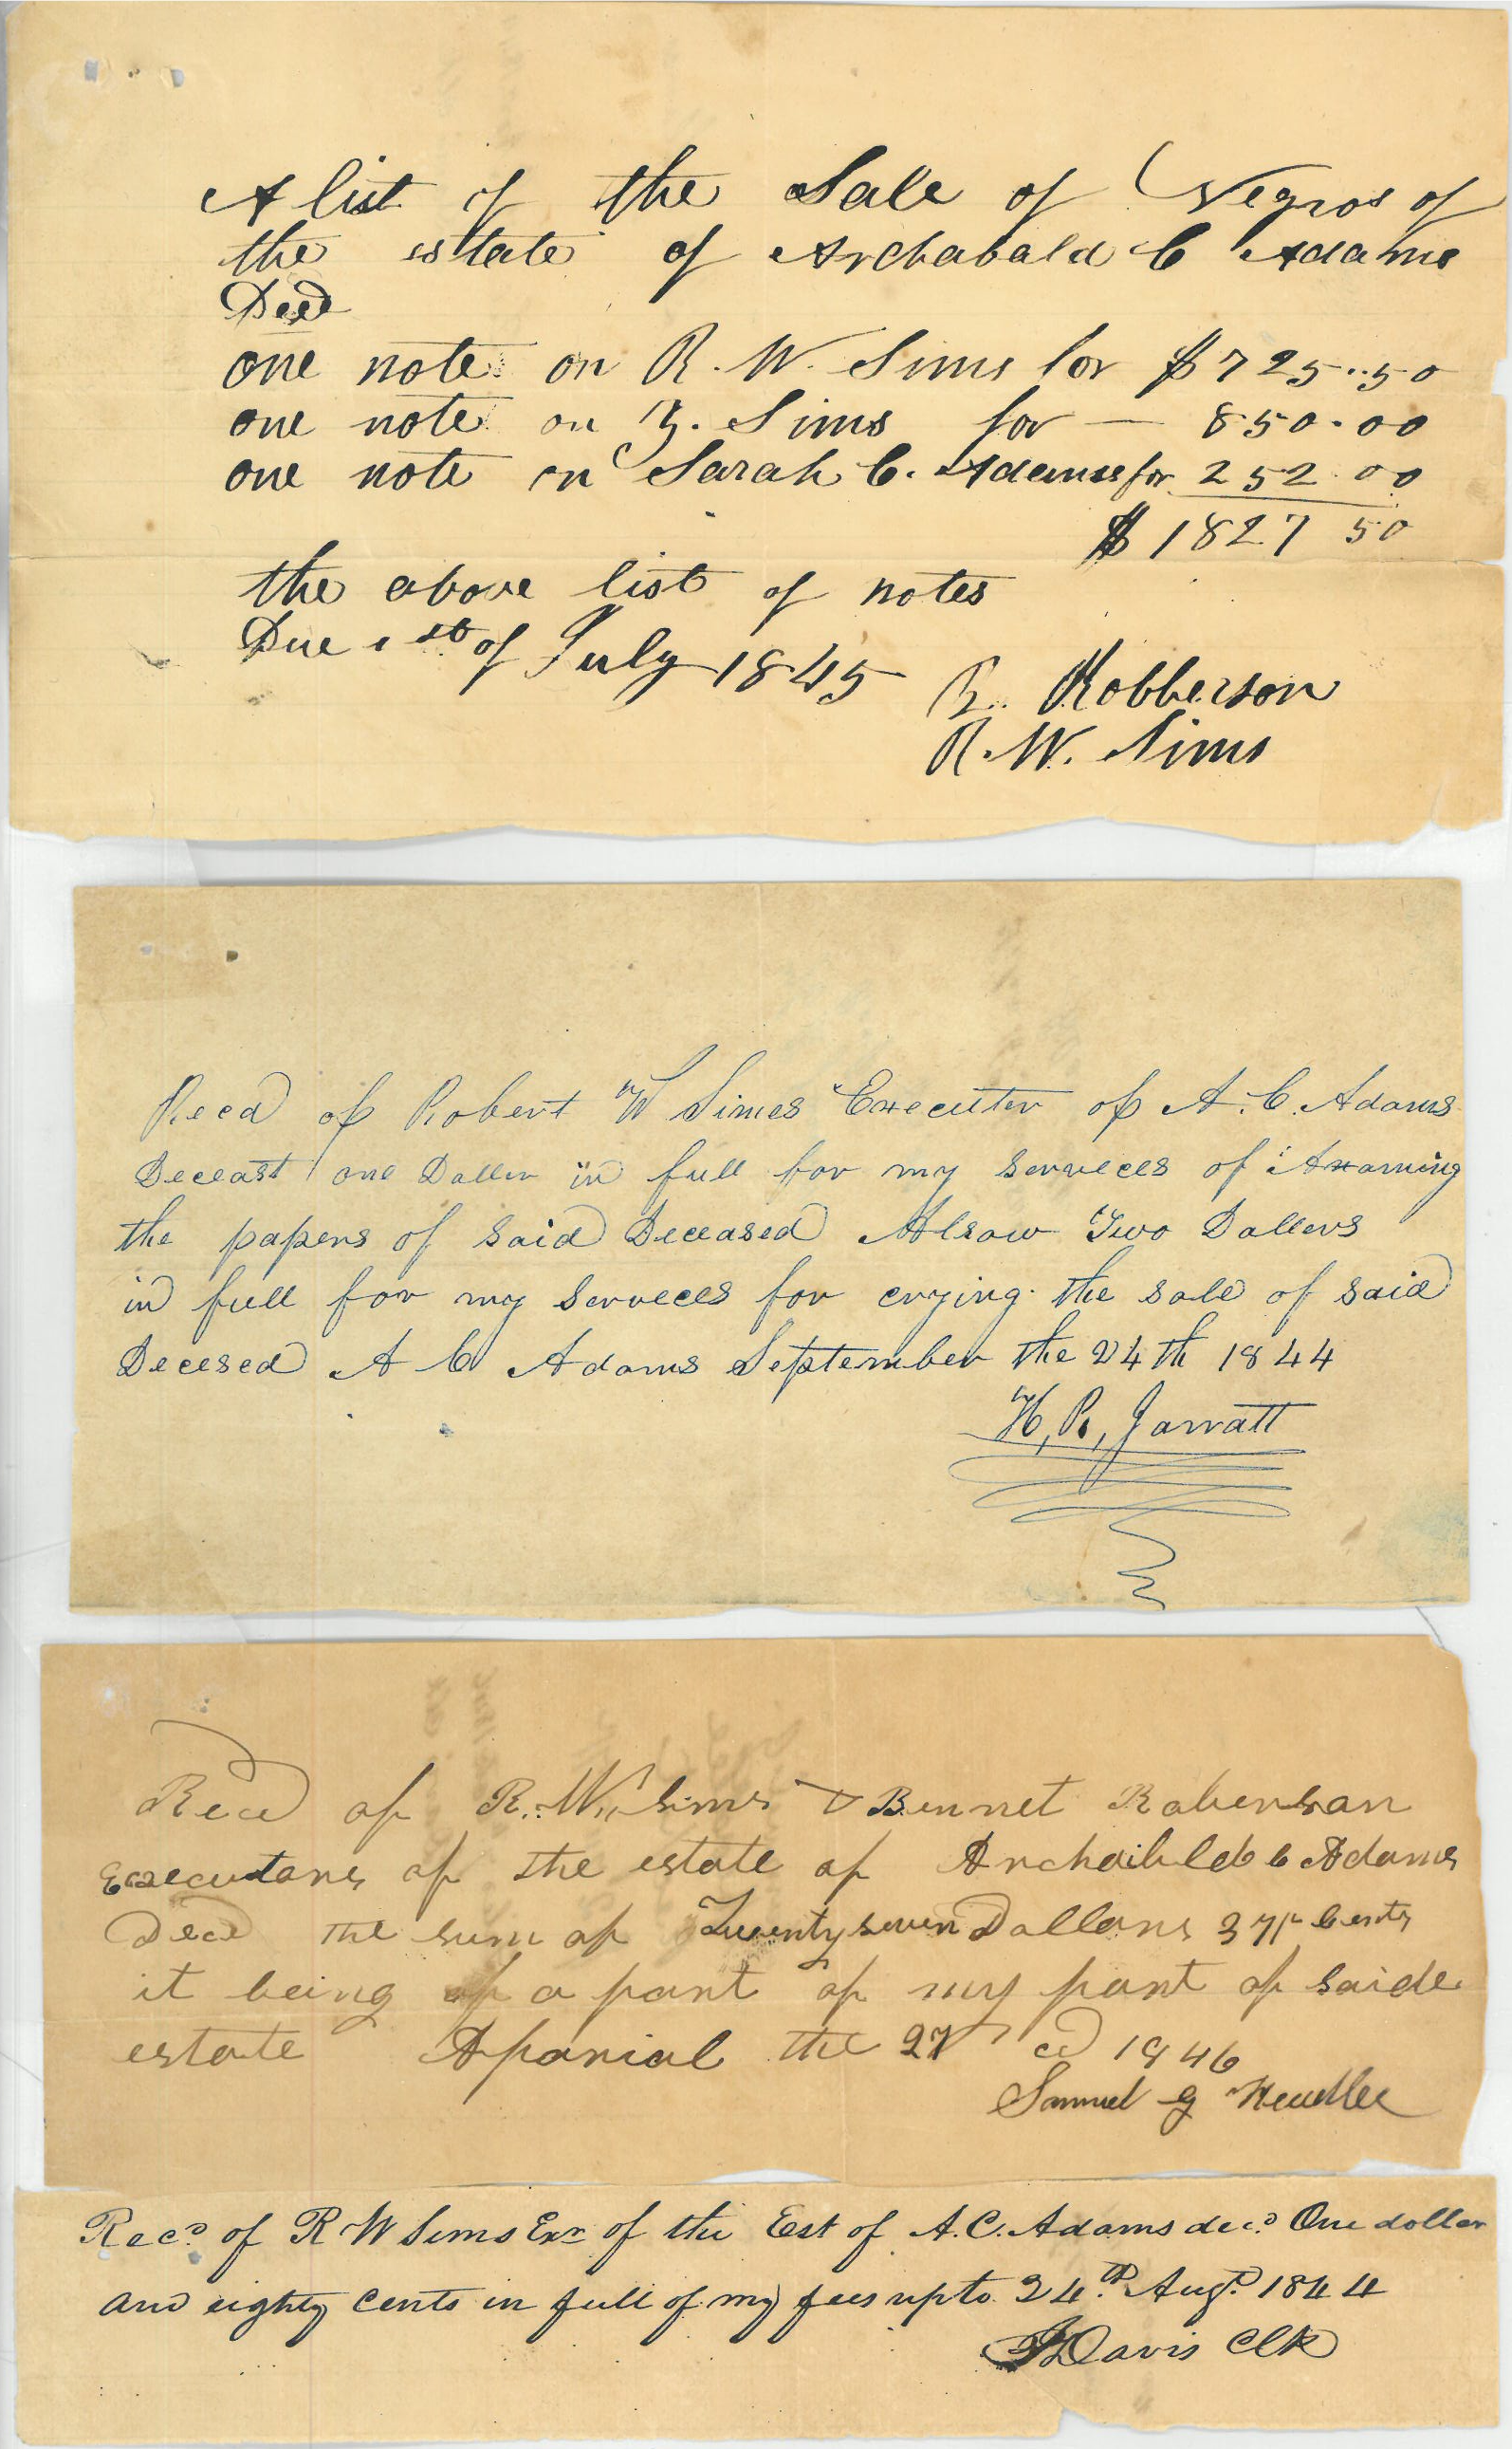 A list of the Sale of Negros of
the estate of Archabald C Adams
Decd
one note on R. W. Sims for $725..50
one note on B. Sims for — 850.00
one note on Sarah C. Adams for 252.00
$1827 50
the above list of notes
Due 1st of July 1845
B. Robberson
R. W. Sims
Recd of Robert W Simes Executer of A. C. Adams
Deceast one Doller in full for my serveces of Axaming
the papers of said Deceased Alsow Two Dollers
in full for my serveces for crying the sale of said
Decesed A C Adams September the 24th 1844
H, R, Jarratt
Recd of R. W. Sims & Bennet Roberson
Executors of the estate of C Adams
Decd the sum of Twenty seven Dollars Cents
it being of a part of my part of saide
estate the 27 1846
Samuel G Headlee
Recd of R W Sims Exr of the Est of A. C. Adams decd One dollar
and eighty cents in full of my fees up to 24th Augt 1844
Davis Clk